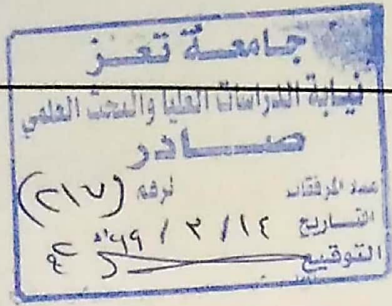 جامعة تعز
نيابة الدراسات العليا والبحث العلمي
صــادر
عدد المرفقات لرقم (٢١٧)
التاريخ ١٤ / ٢ / ٩٩
التوقيع